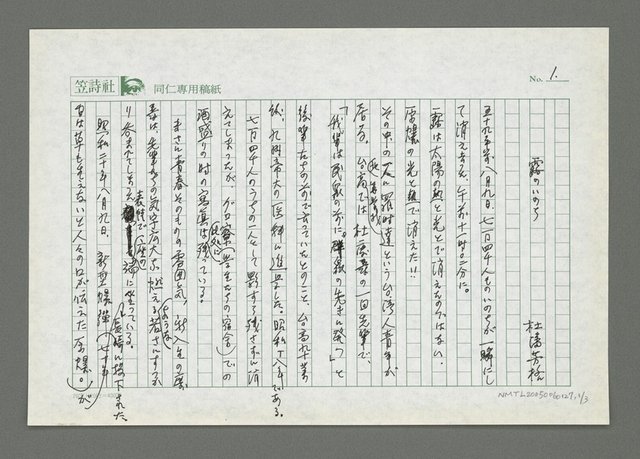 笠詩社
同仁専用稿紙
No. 1.
霧のいのち
杜潘芳格
五十九年前八月九日、七万四千人ものいのちが一瞬にし
て消えました、午前十一時二分に。
霧は太陽の熱と光とで消えたのではない、
原爆の光と熱で消えた!!
その中の一人に羅時達という台湾人青年が
居る。台高では杜慶壽の一回先輩で、
「我輩は民衆の前に。群衆の先きに発つ」と
後輩たちの前で言っていたとのこと、台高九十業
後、九州帝大の医科に進学した。昭和十八年である。
七万四千人のうちの一人として影すら残さずに消
えてしまったが、台高寮(学生たちの宿舎)での
酒盛りの時の写真は残っている。
青春そのものの雰囲気、新入生の慶
壽は、先輩たちの気宇広大な燃える若さにすっか
端に坐っている。
昭和二十年八月九日、新型爆弾
長崎に投下された
草も生えないと人々の口が伝えた原爆。が
NMTL20050060127,1/3